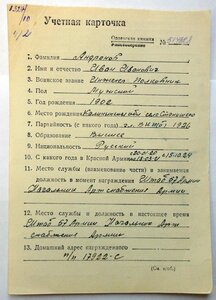 Учетная карточка
1. Фамилия
2. Имя и отчество Иван Иванович
3. Воинское звание Инженер Полковник
4. Пол Мужской
5. Год рождения 1902
6. Место рождения
7. Партийность (с какого года) чл. ВКП(б) 1926
8. Образование Высшее
9. Национальность Русский
10. С какого года в Красной Армии с 15.10.24
11. Место службы (наименование части) и занимаемая
должность в момент награждения Штаб 67 Армии
Начальник Арт. снабжения Армии
12. Место службы и должность в настоящее время
Штаб 67 Армии Начальник Арт.
снабжения Армии
13. Домашний адрес награжденного
п/п 17922-С
(См. на об.)